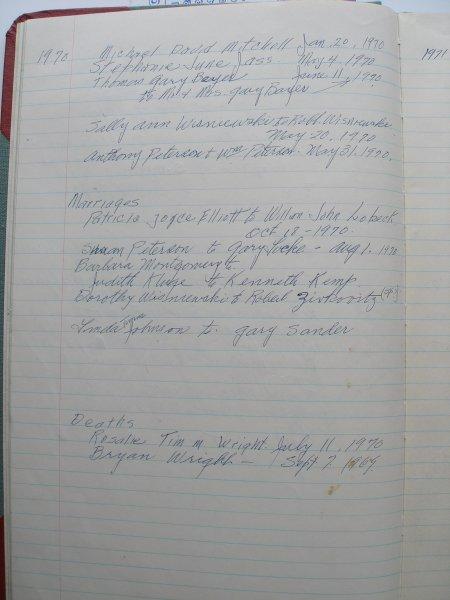 1970 Michael David Mitchell Jan. 20, 1970
Stephanie June Jass. May 4, 1970
Thomas Gary Bayer June 11, 1970
to Mr & Mrs. Gary Bayer
Sally Ann Wisniewski to Robt Wisniewski
May 20, 1970
Anthony Peterson & Wm Peterson. May 31, 1970.
Marriages
Patricia Joyce Elliott to William John Lobeck
Oct 18 - 1970.
Susan Peterson to Gary Locke - Aug 1. 1970
Barbara Montgomery to
Judith Kluge to Kenneth Kemp
Dorothy Wisniewski to Robert Zivkovitz (sp?)
Linda Johnson to Gary Sander
Deaths
Rosalie Tim M. Wright July 11, 1970
Bryan Wright - Sept 7 1969
1971